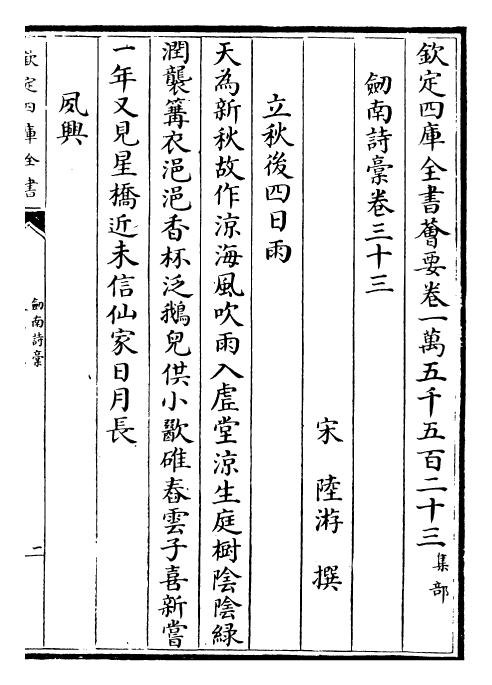 欽定四庫全書薈要卷一萬五千五百二十三集部
劒南詩稾卷三十三
宋陸游撰
立秋後四日雨
天為新秋故作涼海風吹雨入虛堂涼生庭樹陰陰綠
潤襲篝衣浥浥香杯泛鵝兒供小歠碓舂雲子喜新嘗
一年又見星橋近未信仙家日月長
夙興
欽定四庫全書
劒南詩稾
二